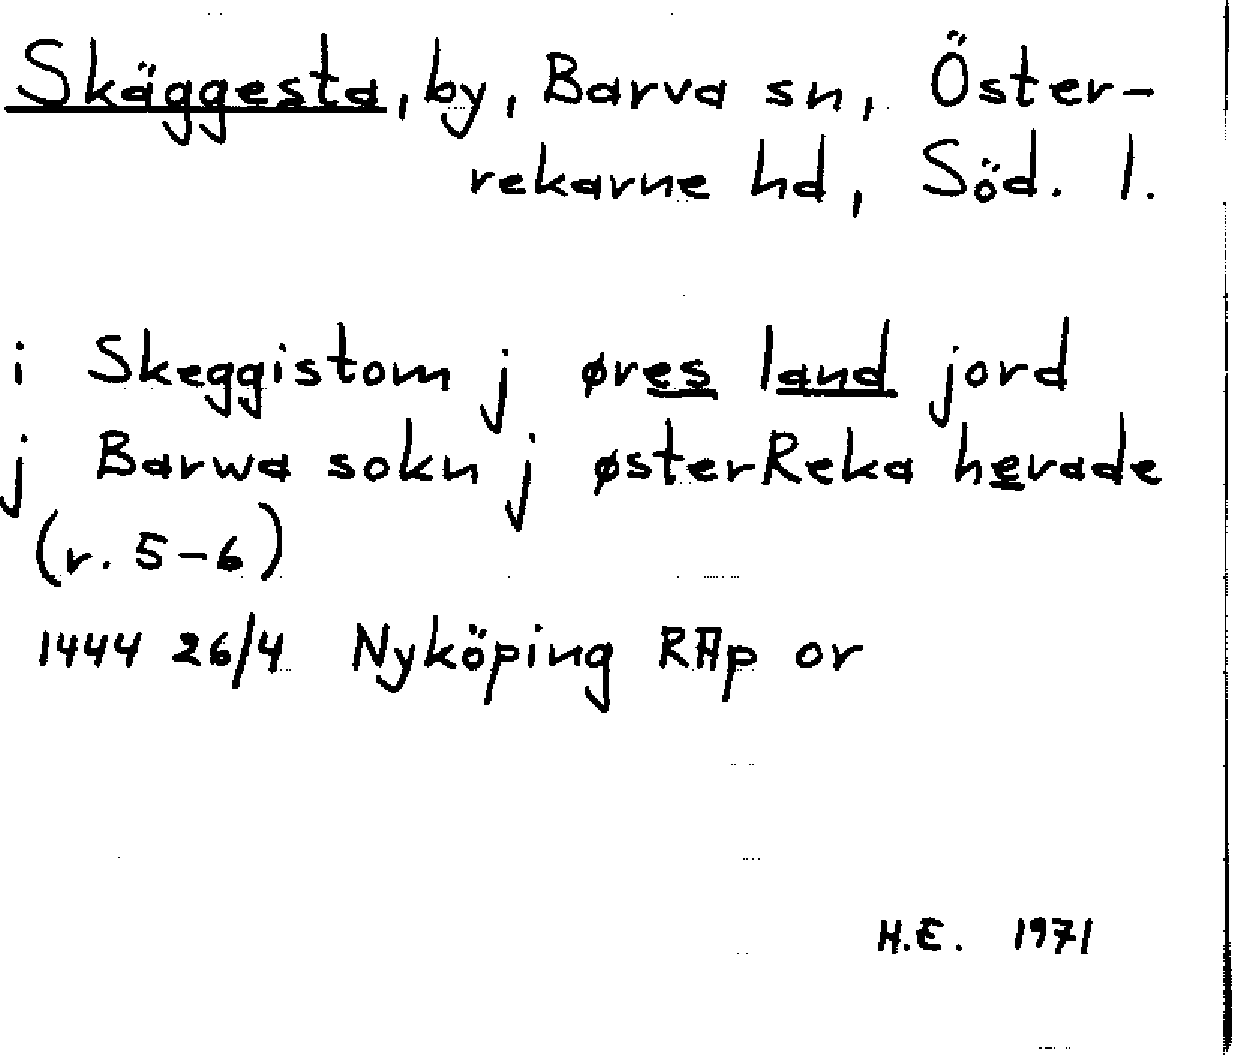 Skäggesta, by, Barva sn, Öster-
rekarne hd, Söd. l.
i Skeggistom j øres land jord
j Barwa sokn j østerReka herade
(r. 5-6)
1444 26/4 Nyköping RAp or
H.E. 1971